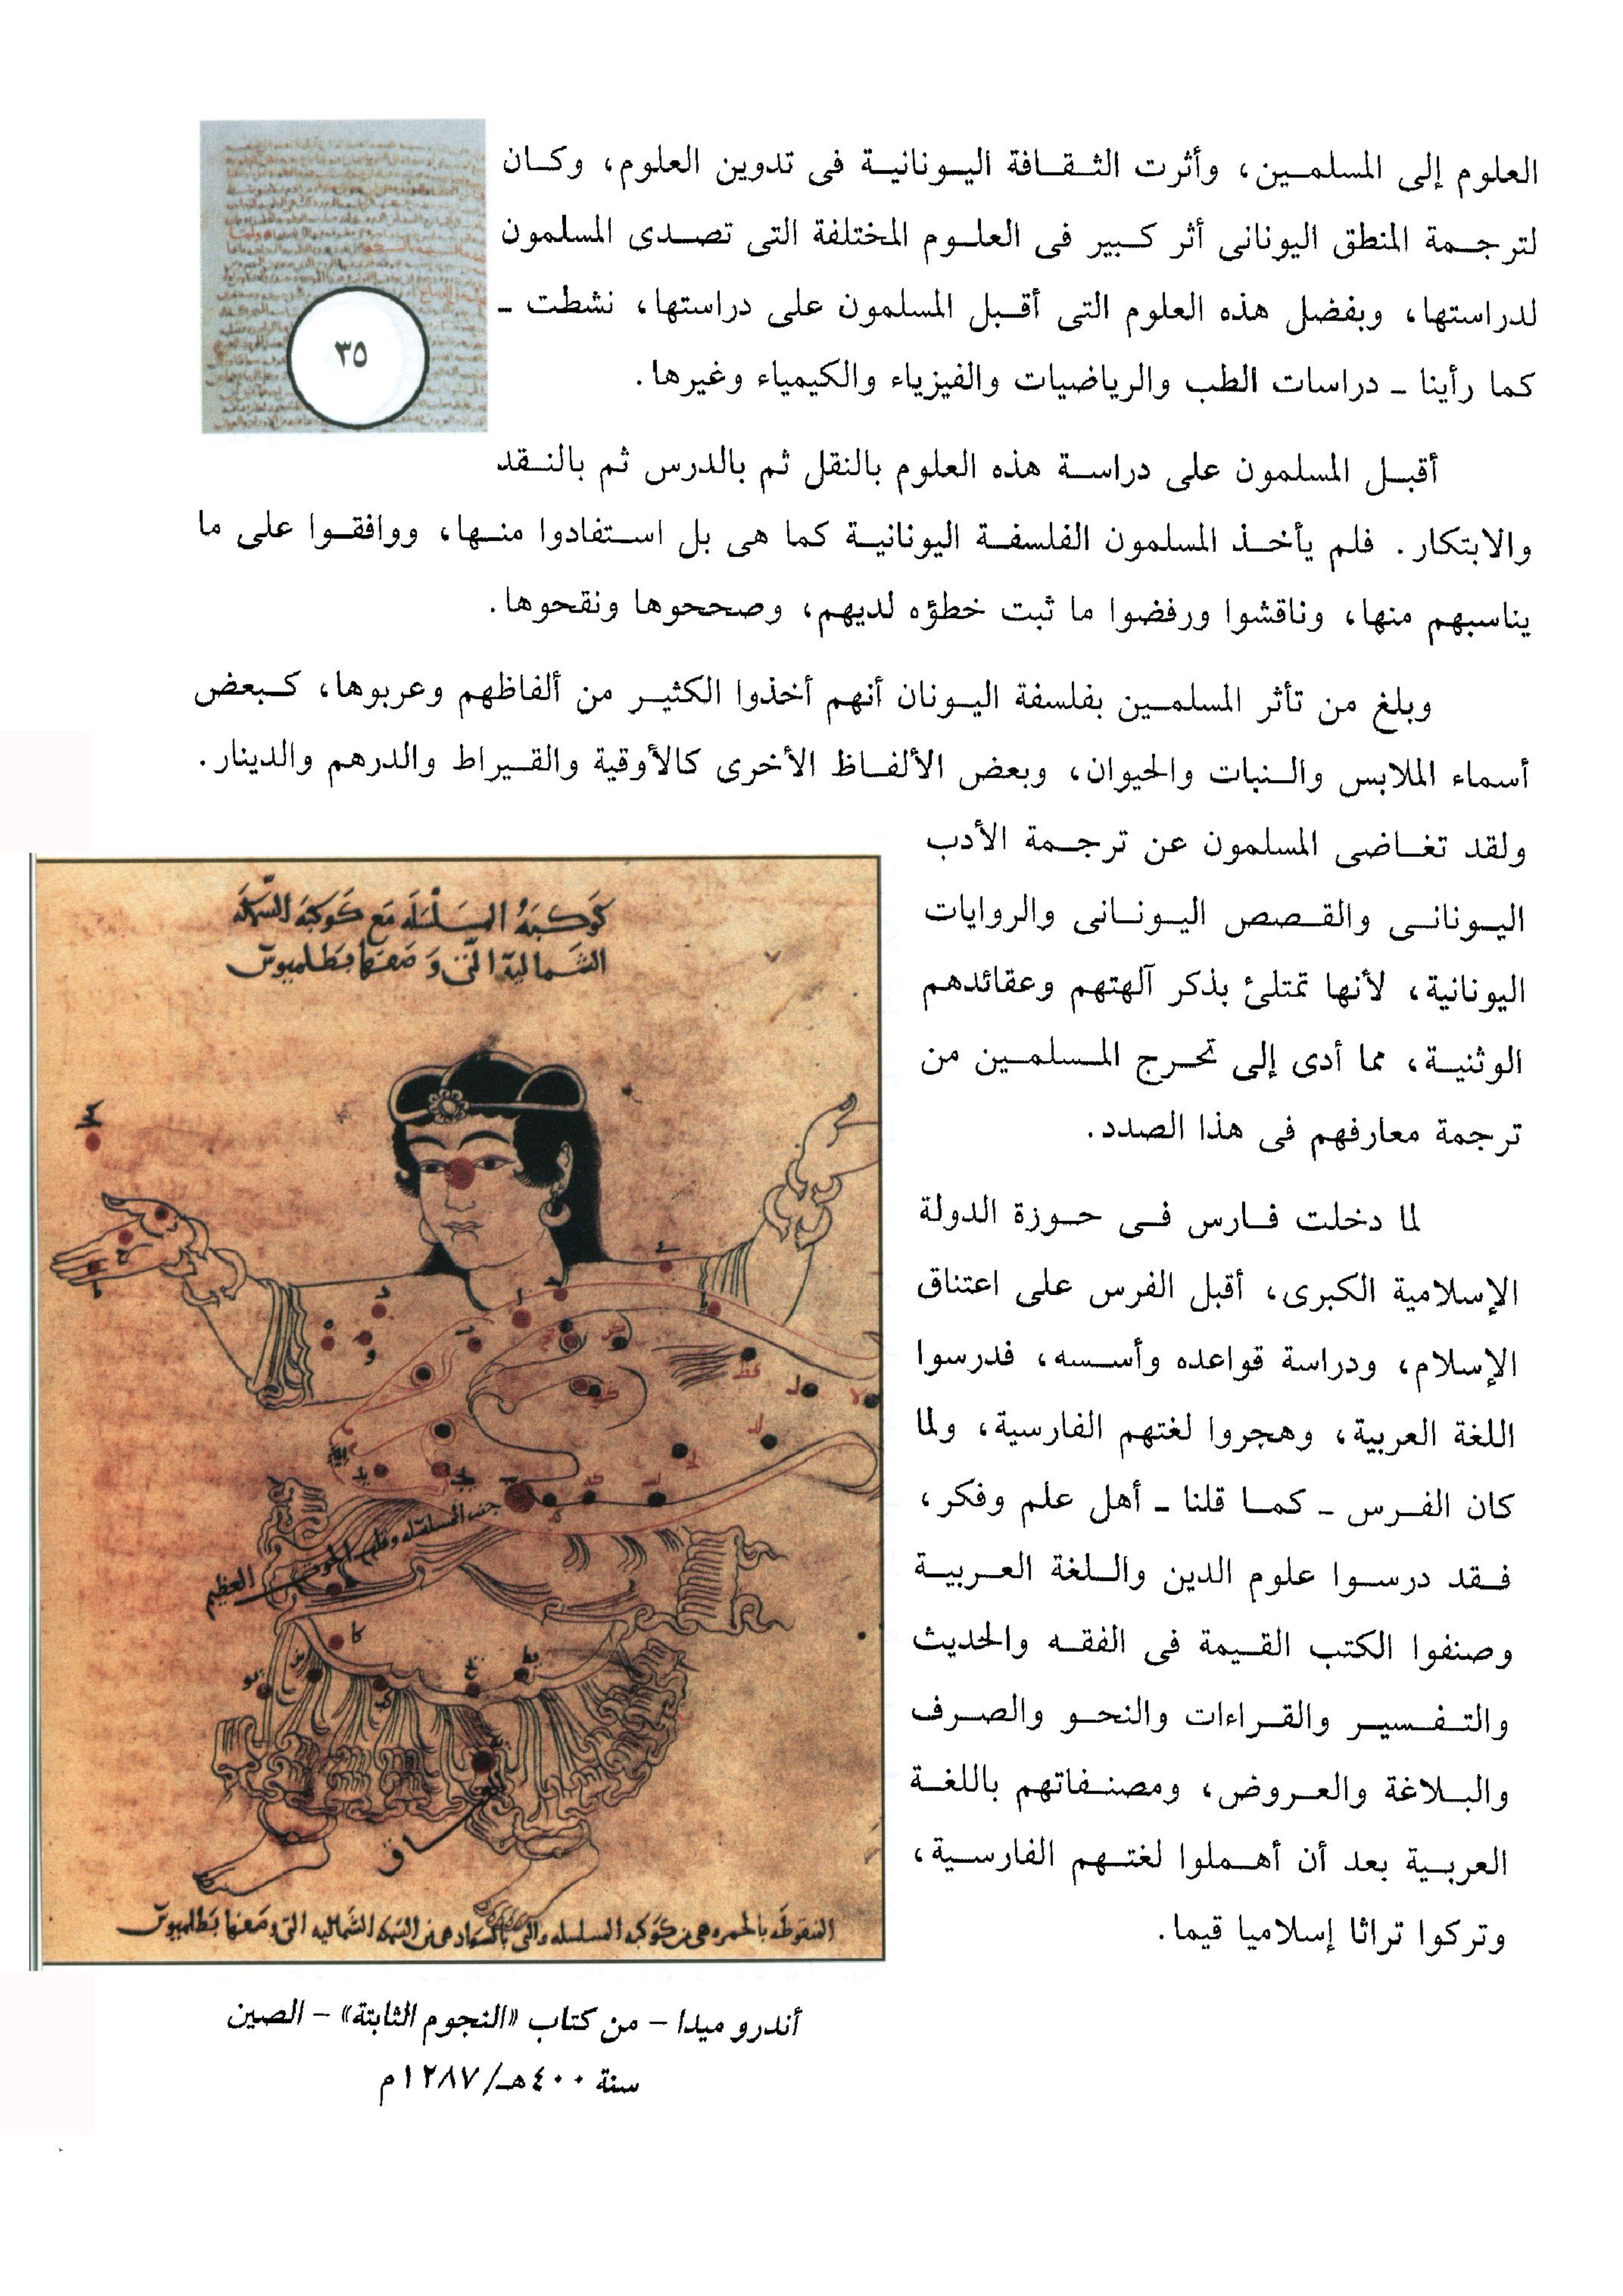 العلوم إلى المسلمين، وأثرت الثقافة اليونانية فى تدوين العلوم، وكان
لترجمة المنطق اليونانى أثر كبير فى العلوم المختلفة التى تصدى المسلمون
لدراستها، وبفضل هذه العلوم التى أقبل المسلمون على دراستها، نشطت ـ
كما رأينا ـ دراسات الطب والرياضيات والفيزياء والكيمياء وغيرها.
٣٥
أقبل المسلمون على دراسة هذه العلوم بالنقل ثم بالدرس ثم بالنقد
والابتكار. فلم يأخذ المسلمون الفلسفة اليونانية كما هى بل استفادوا منها، ووافقوا على ما
يناسبهم منها، وناقشوا ورفضوا ما ثبت خطؤه لديهم، وصححوها ونقحوها.
وبلغ من تأثر المسلمين بفلسفة اليونان أنهم أخذوا الكثير من ألفاظهم وعربوها، كبعض
أسماء الملابس والنبات والحيوان، وبعض الألفاظ الأخرى كالأوقية والقيراط والدرهم والدينار.
ولقد تغاضى المسلمون عن ترجمة الأدب
اليونانى والقصص اليونانى والروايات
اليونانية، لأنها تمتلئ بذكر آلهتهم وعقائدهم
الوثنية، مما أدى إلى تحرج المسلمين من
ترجمة معارفهم فى هذا الصدد.
لما دخلت فارس فى حوزة الدولة
الإسلامية الكبرى، أقبل الفرس على اعتناق
الإسلام، ودراسة قواعده وأسسه، فدرسوا
اللغة العربية، وهجروا لغتهم الفارسية، ولما
كان الفرس ـ كما قلنا ـ أهل علم وفكر،
فقد درسوا علوم الدين واللغة العربية
وصنفوا الكتب القيمة فى الفقه والحديث
والتفسير والقراءات والنحو والصرف
والبلاغة والعروض، ومصنفاتهم باللغة
العربية بعد أن أهملوا لغتهم الفارسية،
وتركوا تراثا إسلاميا قيما.
كَوكبَةُ المسَلْسَلَه مَع كَوكبَه السَّمكه
الشَمالية التى وَضعَها بَطلميوس
جنب المسلسله وقلب الحوت العظيم
ساق
المنقوطَه بالحمره هى من كَوكبه المسلسله والتى بالسَواد هى من السَمكه الشَماليه التى وضعَها بَطلميوس
أندروميدا – من كتاب «النجوم الثابتة» – الصين
سنة ٤٠٠هـ/١٢٨٧م